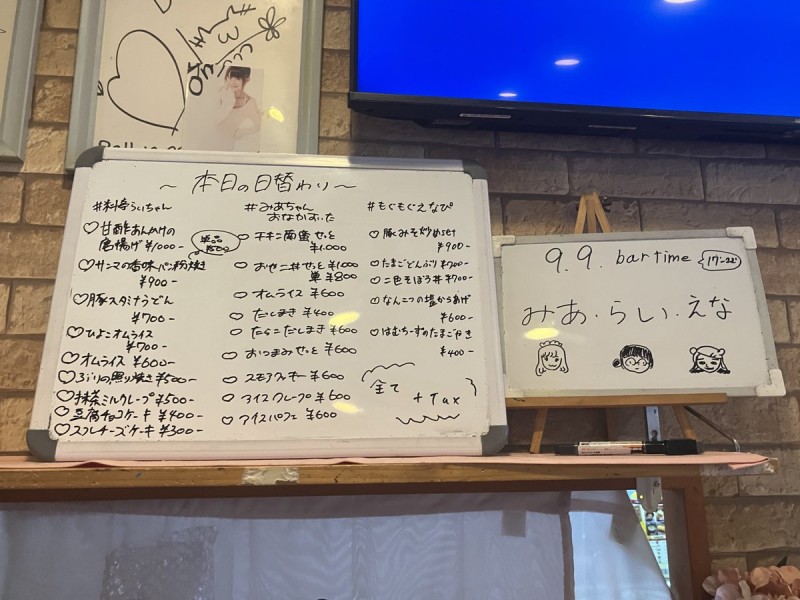 ～ 本日の日替わり ～
#料亭らいちゃん
♡甘酢あんかけの
唐揚げ ¥1000-
単品
♡サンマの香味パン粉焼き
¥900-
♡豚スタミナうどん
¥700-
♡ひよこオムライス
¥700-
♡オムライス ¥600-
♡ぶりの照り焼き ¥500-
♡抹茶ミルクレープ ¥500-
♡豆腐チョコケーキ ¥400-
♡スフレチーズケーキ ¥300-
#みあちゃん
おなかすいた
♡チキン南蛮セット
¥1,000
♡おせニ丼セット ¥1000
単 ¥800
♡オムライス ¥600
♡だしまき ¥400
♡たらこだしまき ¥600
♡おつまみセット ¥600
♡スモアクッキー ¥600
♡アイスクレープ ¥600
♡アイスパフェ ¥600
#もぐもぐえなぴ
♡豚みそ炒めset
¥900-
♡たまごどんぶり ¥700-
♡二色そぼろ丼 ¥700-
♡なんこつの塩からあげ
¥600-
♡はむちーずのたまごやき
¥400-
全て
+Tax
9.9. bartime
みあ・らい・えな